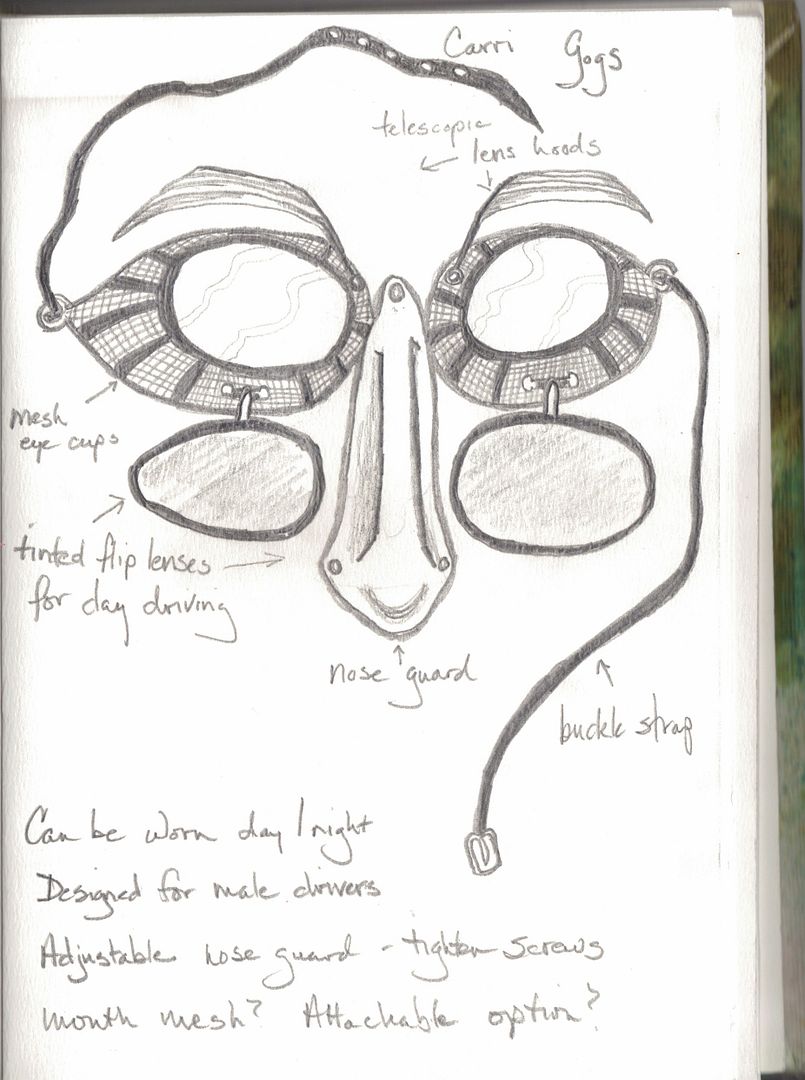 Carri Gogs
telescopic
lens hoods
mesh
eye cups
tinted flip lenses
for day driving
nose guard
buckle strap
Can be worn day/night
Designed for male drivers
Adjustable nose guard - tighten screws
mouth mesh? Attachable option?